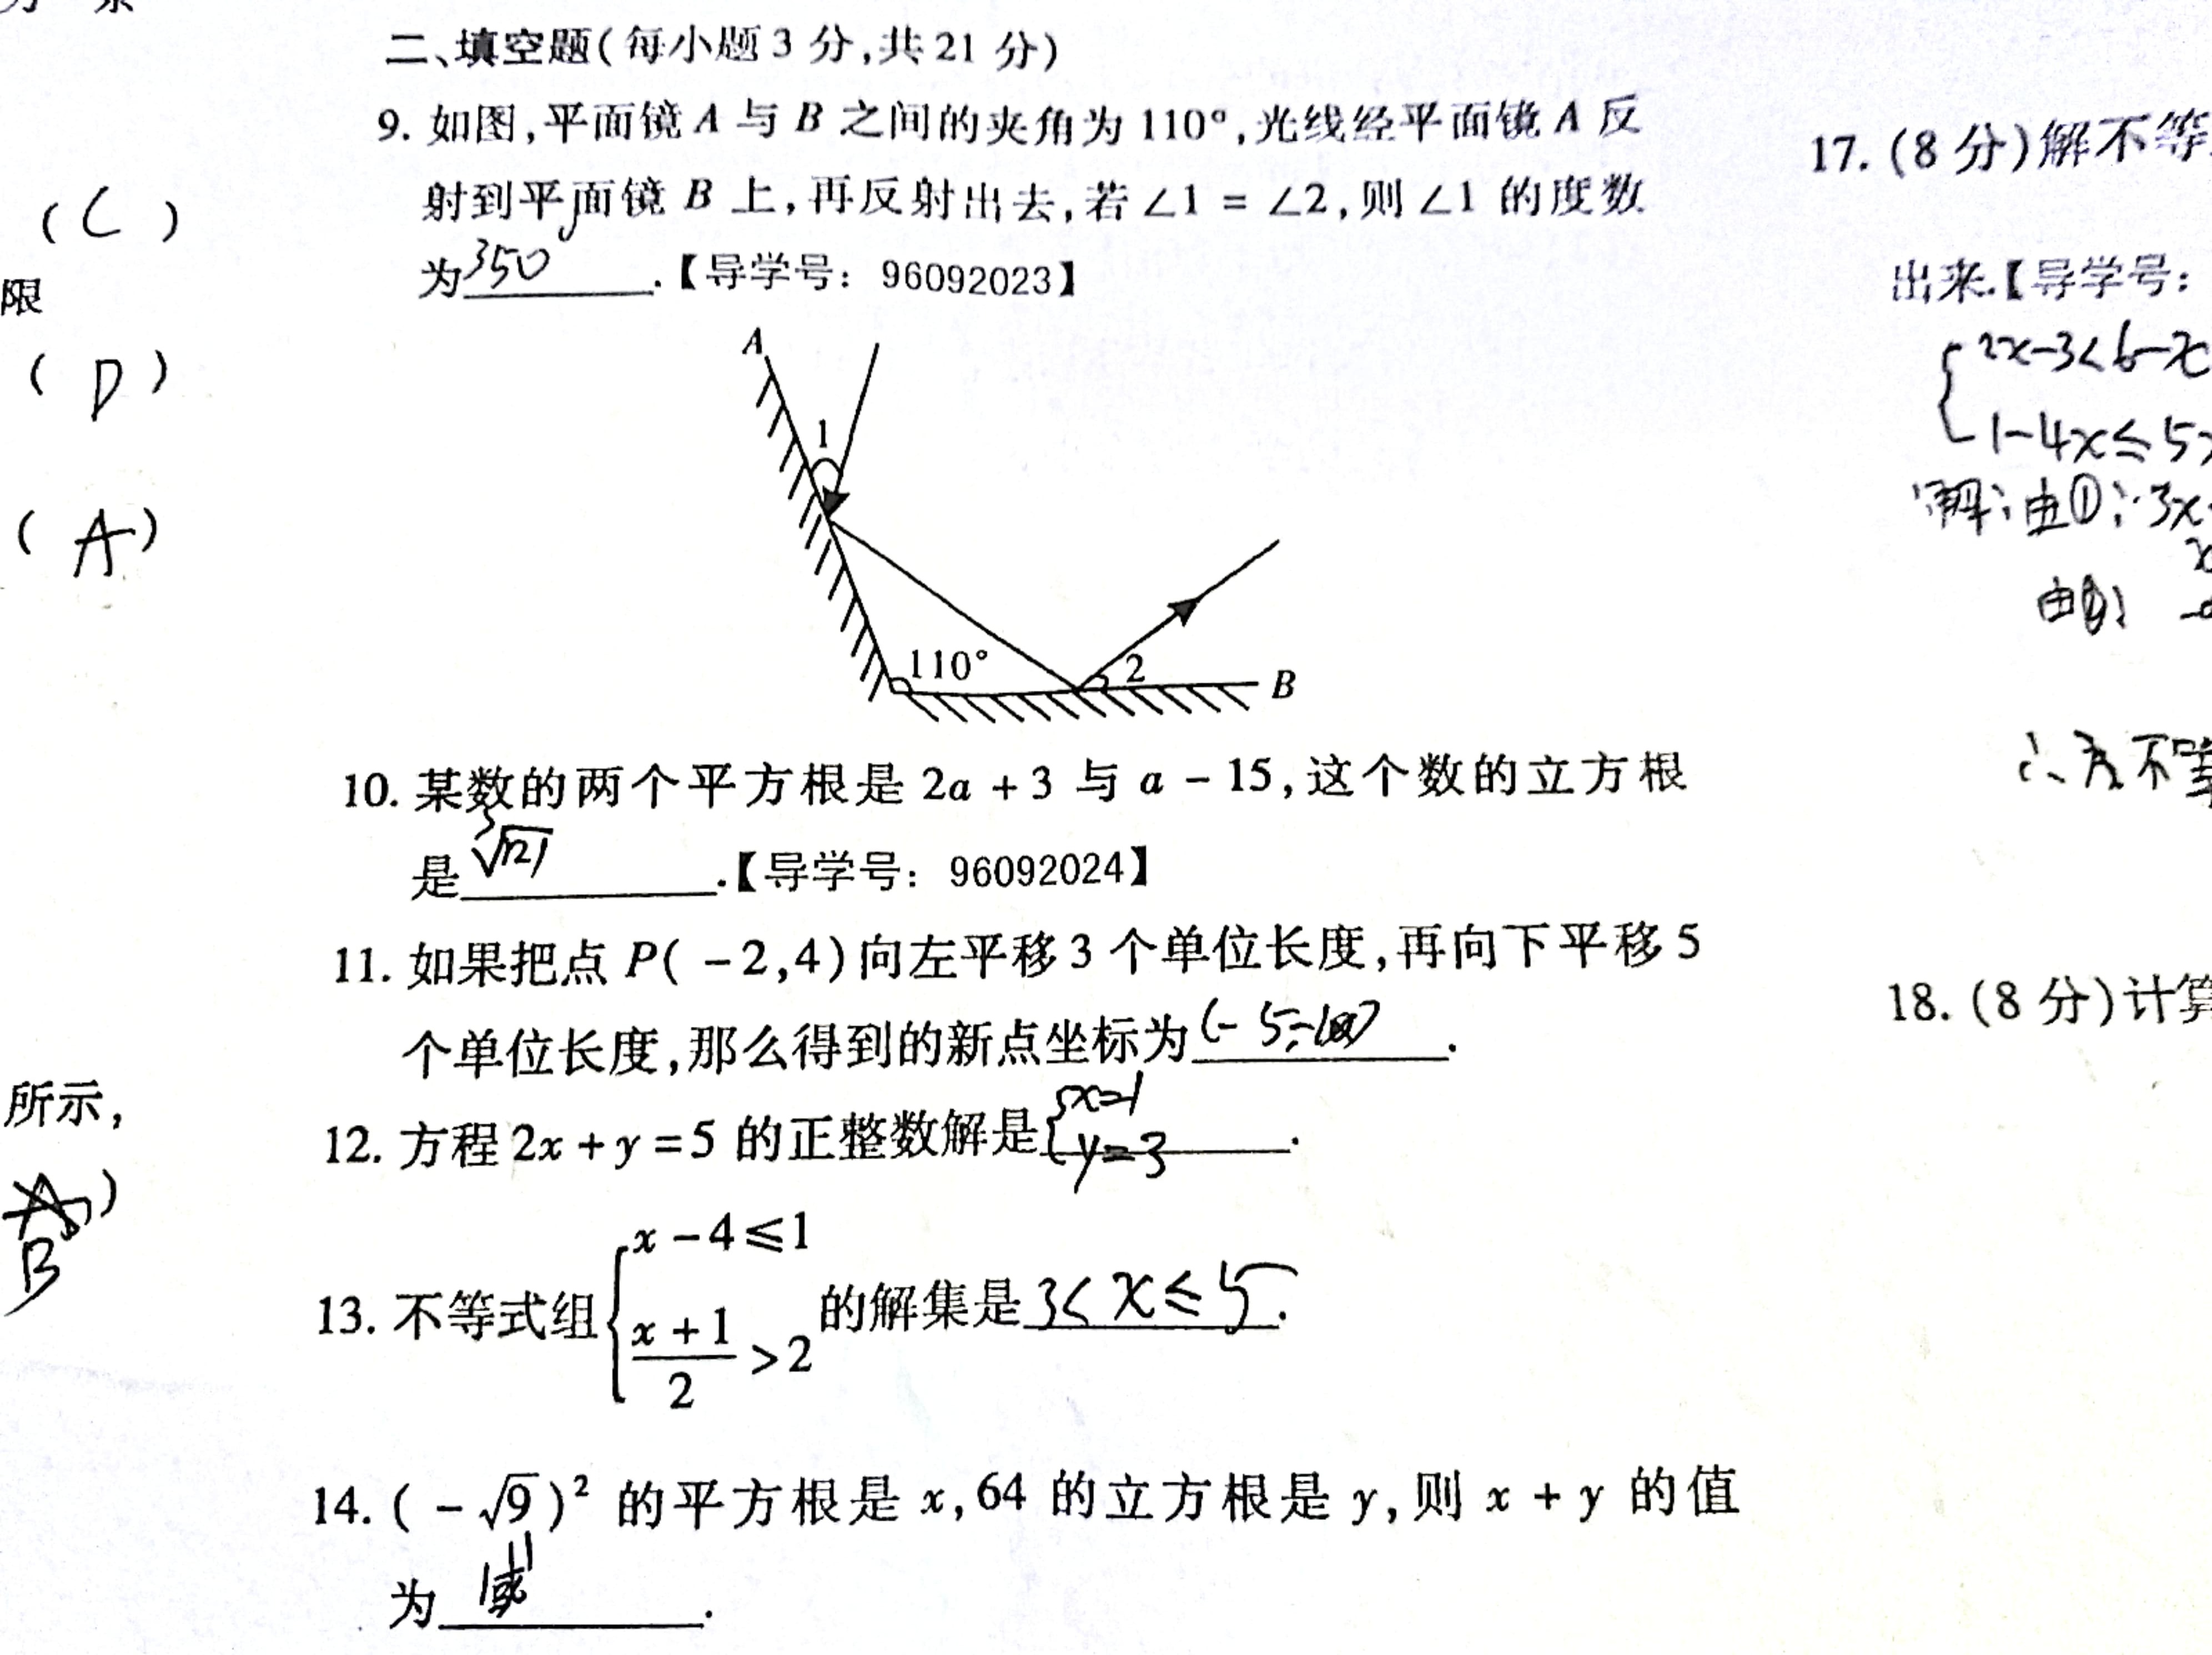 二、填空题(每小题3分,共21分)
9. 如图,平面镜A与B之间的夹角为110°,光线经平面镜A反
射到平面镜B上,再反射出去,若∠1=∠2,则∠1的度数
为350.【导学号：96092023】
A
1
110°
2
B
10. 某数的两个平方根是2a+3与a-15,这个数的立方根
是∛121.【导学号：96092024】
11. 如果把点P(-2,4)向左平移3个单位长度,再向下平移5
个单位长度,那么得到的新点坐标为(-5,
12. 方程2x+y=5的正整数解是{x=1
y=3.
13. 不等式组{x-4≤1
x+1/2>2的解集是3<x≤5.
14. (-√9)²的平方根是x,64的立方根是y,则x+y的值
为
(C)
限
(D)
(A)
所示,
B
17. (8分)解不等
出来.【导学号：
{2x-3<6-x
1-4x≤5
解：由①：3x
由②：
18. (8分)计算